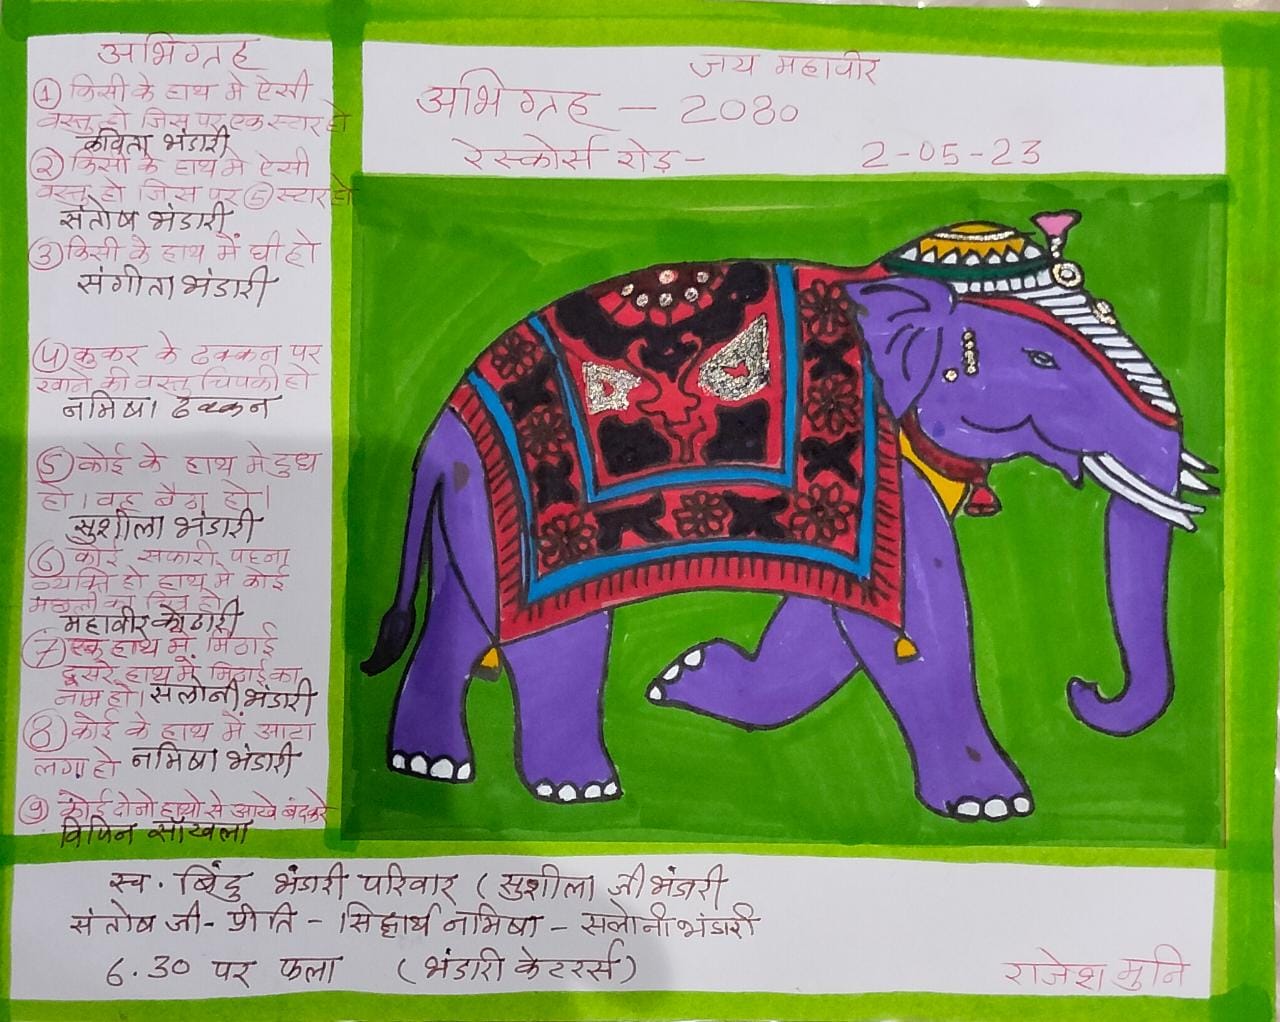 जय महावीर
अभिग्रह - 2080
रेस्कोर्स रोड़ - 2-05-23
अभिग्रह
① किसी के हाथ मे ऐसी
वस्तु हो जिस पर एक स्टार हो
कविता भंडारी
② किसी के हाथ मे ऐसी
वस्तु हो जिस पर ⑤ स्टार हो
संतोष भंडारी
③ किसी के हाथ में घी हो
संगीता भंडारी
④ कुकर के ढक्कन पर
खाने की वस्तु चिपकी हो
नमिषा ढक्कन
⑤ कोई के हाथ मे दुध
हो। वह बैग हो।
सुशीला भंडारी
⑥ कोई सफारी पहना
व्यक्ति हो हाथ मे कोई
मछली का चित्र हो
महावीर कोठारी
⑦ एक हाथ में मिठाई
दुसरे हाथ में मिठाई का
नाम हो। सलोनी भंडारी
⑧ कोई के हाथ में आटा
लगा हो नमिषा भंडारी
⑨ कोई दोनो हाथो से आखे बंद करे
विपिन साँखला
स्व. बिंदु भंडारी परिवार (सुशीला जी भंडारी
संतोष जी - प्रीति - सिद्धार्थ नमिषा - सलोनी भंडारी
6.30 पर फला (भंडारी केटरर्स)
राजेश मुनि